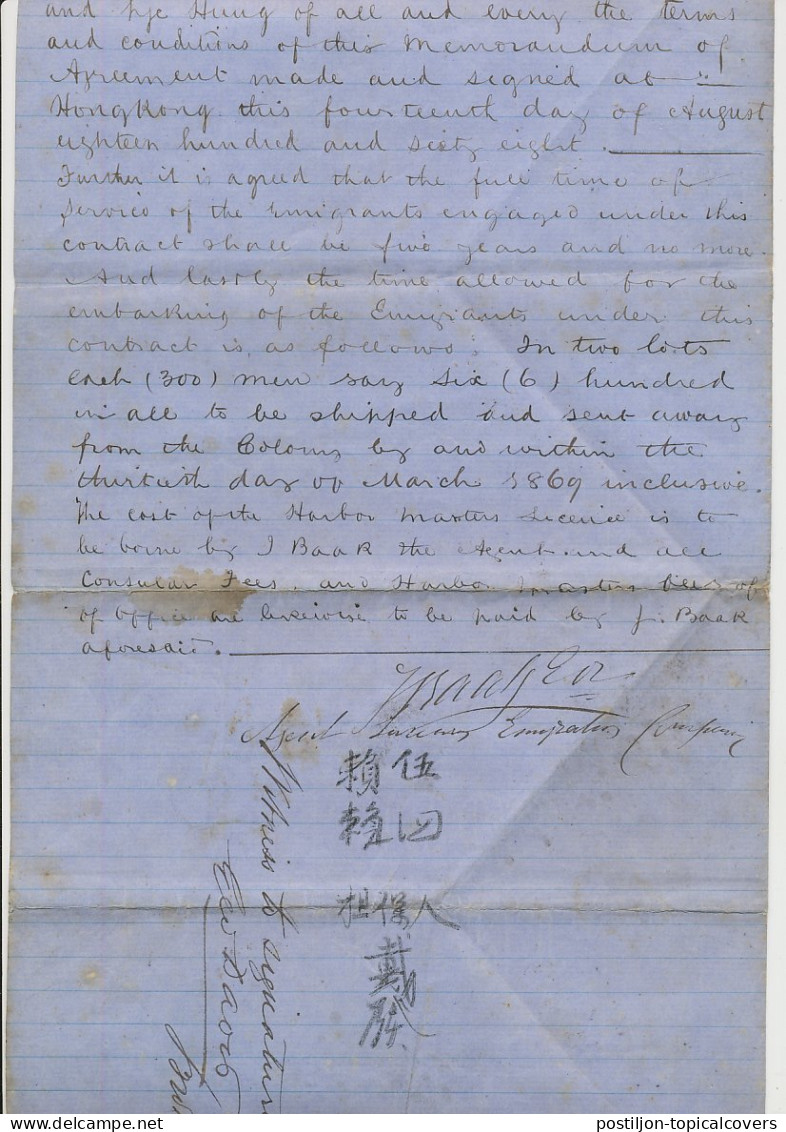 and Lye Hung of all and every the terms
and conditions of this Memorandum of
Agreement made and signed at
Hongkong this fourteenth day of August
eighteen hundred and sixty eight.
Further it is agreed that the full time of
service of the Emigrants engaged under this
contract shall be five years and no more.
And lastly the time allowed for the
embarking of the Emigrants under this
contract is as follows: In two lots
each (300) men say Six (6) hundred
in all to be shipped and sent away
from the Colony by and within the
thirtieth day of March 1869 inclusive.
The cost of the Harbor Masters Licence is to
be borne by J Baak the Agent and all
Consular Fees and Harbor Masters fees of
of office are likewise to be paid by J. Baak
aforesaid.
Agent Emigration Company
賴伍
賴四
担保人
戴
Witness to signature
postiljon-topicalcovers